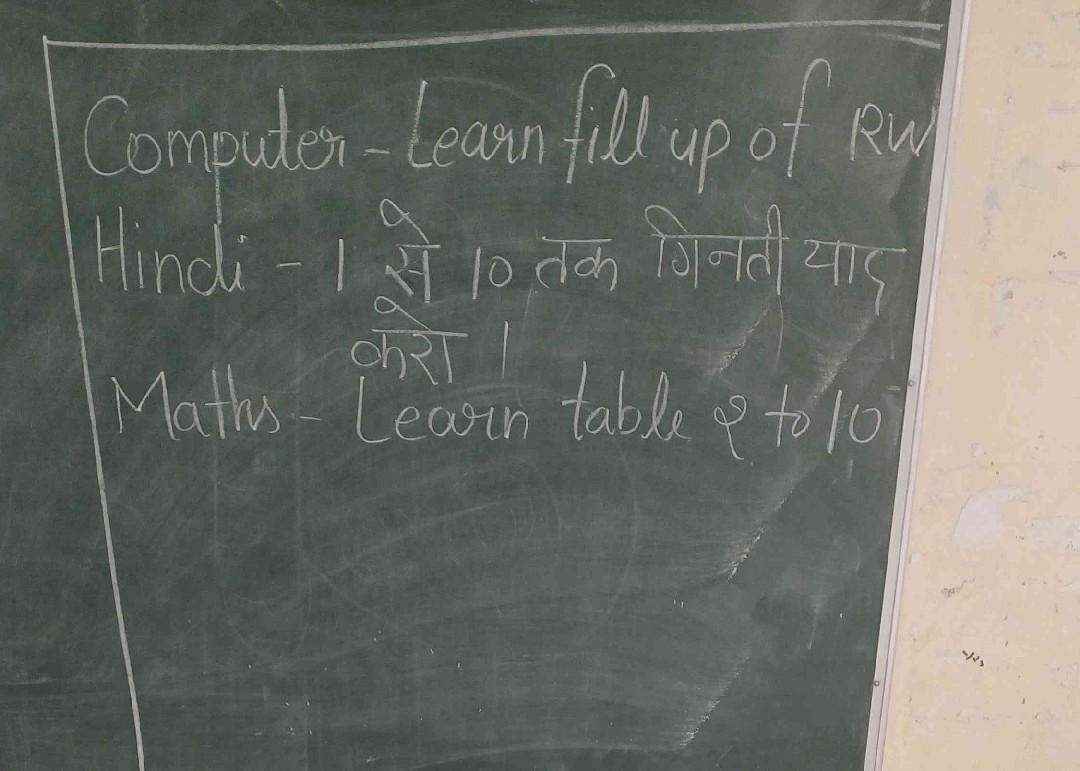 Computer - Learn fill up of RW
Hindi - 1 से 10 तक गिनती याद
करो ।
Maths - Learn table 2 to 10